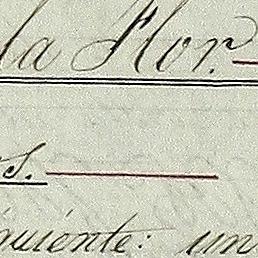 la Flor.
s.
uiente: un